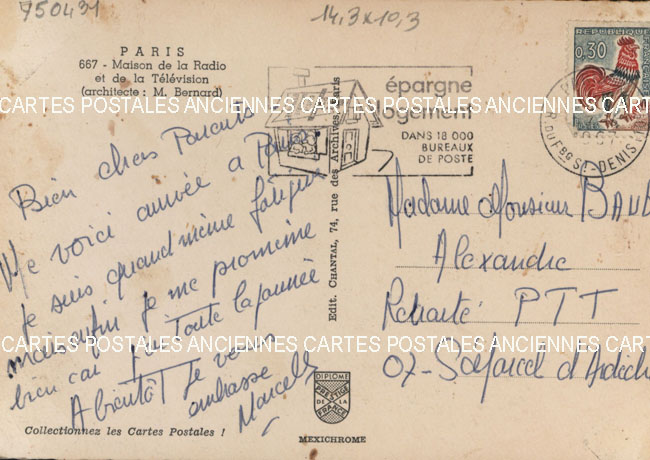 750431
14,3 x 10,3
PARIS
667 - Maison de la Radio
et de la Télévision
(architecte : M. Bernard)
épargne
logement
DANS 18 000
BUREAUX
DE POSTE
REPUBLIQUE
0,30
R. DU FBG ST-DENIS
CARTES POSTALES ANCIENNES CARTES POSTALES ANCIENNES CARTES POSTALES
Bien chers Parents
Me voici arrivée à Paris.
Je suis quand même fatiguée
mais enfin je me promène
bien car Toute la journée
A bientôt Je vous
embrasse
Marcelle
Edit. CHANTAL, 74, rue des Archives, Paris
Madame Monsieur BAUD
Alexandre
Retraité PTT
07-St Marcel d'Ardèch
CARTES POSTALES ANCIENNES CARTES POSTALES ANCIENNES CARTES POSTALES
DIPLOME
PRESTIGE
DE LA
FRANCE
Collectionnez les Cartes Postales !
MEXICHROME